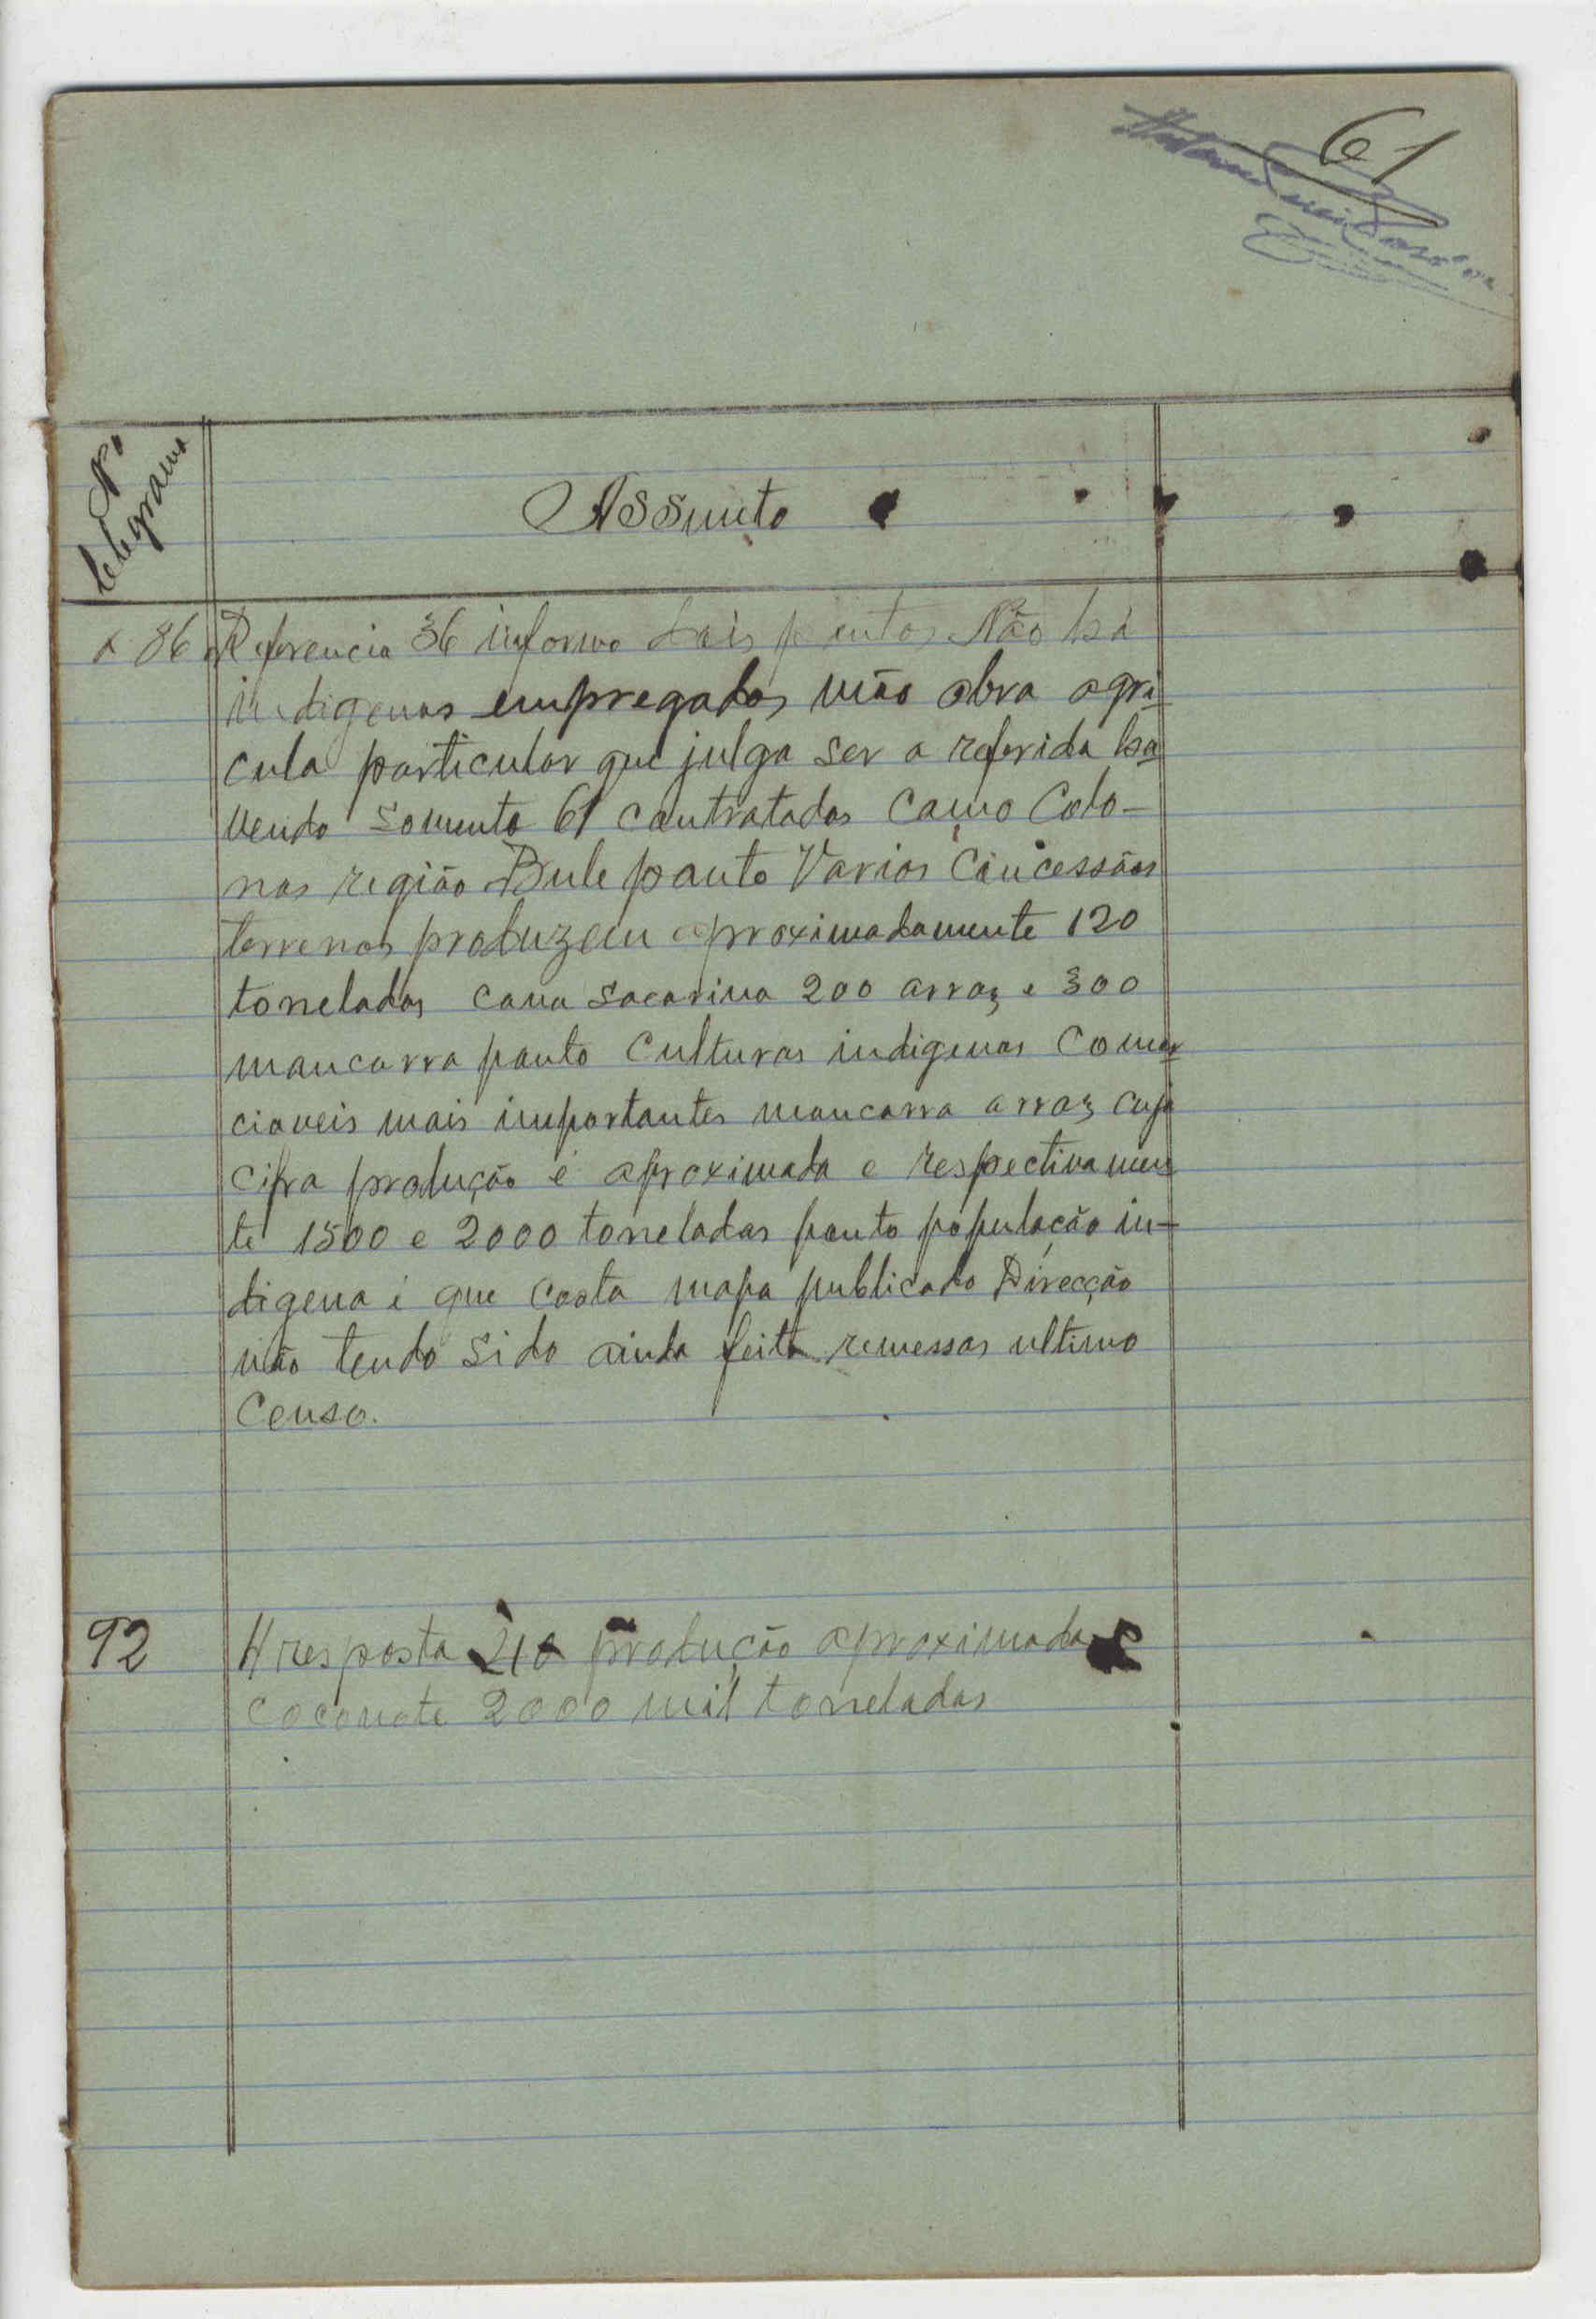 61
No
telegrama
Assunto
x 86 Referencia 36 informo dois pontos Não há
indigenas empregados mão obra agri-
cula particular que julga ser a referida ha-
vendo somente 61 contratados como Colo-
nos região Bule ponto Varios Concessões
terrenos produzem aproximadamente 120
toneladas cana sacarina 200 arroz e 300
mancarra ponto Culturas indigenas Comer-
ciaveis mais importantes mancarra arroz cuja
cifra produção é aproximada e respectivamen-
te 1500 e 2000 toneladas ponto população in-
digena é que costa mapa publicado Direcção
não tendo sido ainda feita remessas ultimo
Censo.
92 resposta produção aproximada
Coconote 2000 mil toneladas